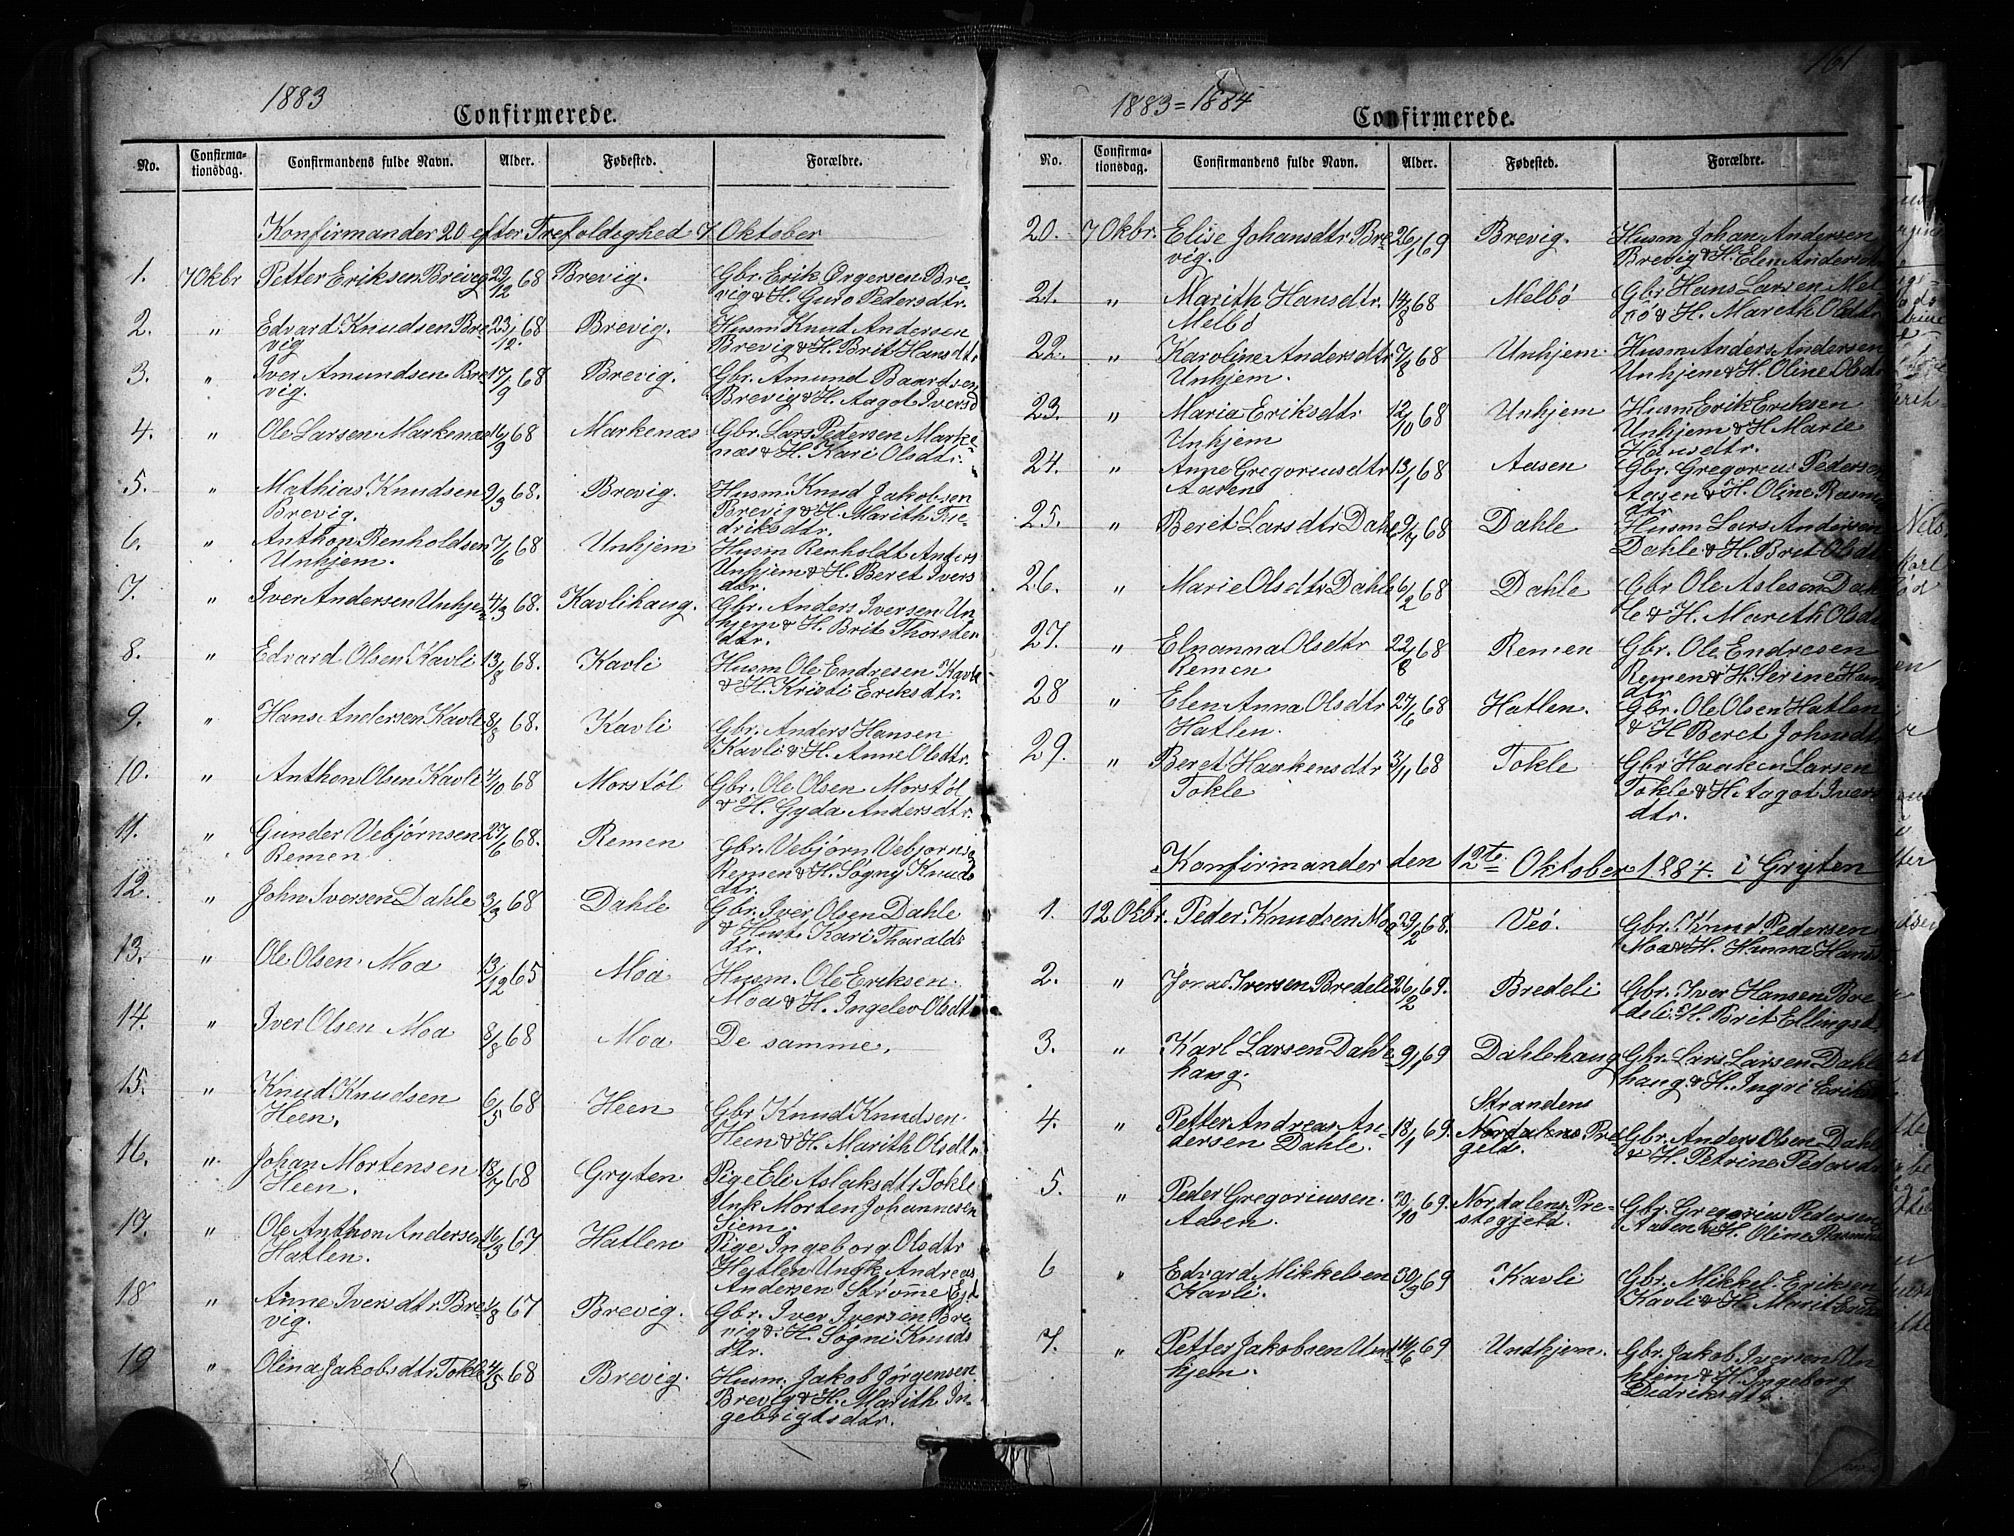 1883
Confirmerede.
No. Confirma-tionsdag. Confirmandens fulde Navn. Alder. Fødested. Forældre.
Konfirmander 20 efter Trefoldighed 7 Oktober
1. 7 Okbr Petter Eriksen Brevig 22/12 68 Brevig. Gbr. Erik Ørgersen Bre-
vig & H. Guro Pedersdtr.
2. " Edvard Knudsen Bre- 23/12 68 Brevig. Husm Knud Andersen
vig Brevig & H. Brit Hansdtr
3. " Iver Amundsen Bre- 17/9 68 Brevig. Gbr. Amund Baardsen
vig. Brevig & H. Aagot Iversd
4. " Ole Larsen Markenæs 16/9 68 Markenæs Gbr. Lars Pedersen Marke-
næs & H. Kari Olsdtr.
5. " Mathias Knudsen 9/3 68. Brevig. Husm. Knud Jakobsen
Brevig. Brevig & H. Marith Fre-
driksdtr.
6. " Anthon Renholdsen 7/6 68 Unhjem Husm Renholdt Anders
Unhjem. Unhjem & H. Beret Ivers
dtr.
7. " Iver Andersen Unhjem 4/3 68. Kavlihaug. Gbr. Anders Iversen Un-
hjem & H. Brit Thorsten
dtr.
8. " Edvard Olsen Kavli 13/8 68. Kavli Husm Ole Endresen Kavli
& H. Kristi Eriksdtr.
9. " Hans Andersen Kavli 8/8 68. Kavli Gbr. Anders Hansen
Kavli & H. Anne Olsdtr.
10. " Anthon Olsen Kavli 4/10 68 Morstøl Gbr. Ole Olsen Morstøl
& H. Gyda Andersdtr.
11. " Gunder Vebjørnsen 27/6 68. Remen Gbr. Vebjørn Vebjørns
Remen Remen & H. Søgny Knuds
dtr.
12. " John Iversen Dahle 3/3 68 Dahle Gbr. Iver Olsen Dahle
& Hust. Kari Tharalds
dtr.
13. " Ole Olsen Moa 13/12 65 Moa Husm. Ole Eriksen
Moa & H. Ingelev Olsdtr
14. " Iver Olsen Moa 8/8 68 Moa De samme.
15. " Knud Knudsen 6/5 68 Heen Gbr Knud Knudsen
Heen. Heen & H. Marith Olsdtr
16. " Johan Mortensen 18/7 68 Gryten Pige Eli Aslaksdtr Tokle
Heen. Unk Morten Johannesen
Siem.
17. " Ole Anthon Andersen 16/3 67 Hatlen Pige Ingeborg Olsdtr
Hatlen. Hatlen Ungk Andreas
Andersen Strømme
18 " Anne Iversdtr Bre- 1/8 67 Brevig. Gbr. Iver Iversen Bre-
vig. vig & H. Søgni Knuds
dtr.
19 " Olina Jakobsdtr Tokle 4/5 68 Brevig. Husm. Jakob Jørgensen
Brevig & H. Marith In-
gebrigtsdtr.
161
1883=1884
Confirmerede.
No. Confirma-tionsdag. Confirmandens fulde Navn. Alder. Fødested. Forældre.
20. 7 Okbr. Elise Johansdtr Bre- 26/1 69 Brevig. Husm Johan Andersen
vig. Brevig & H. Elen Andersdtr
21. " Marith Hansdtr. 14/8 68 Melbø Gbr Hans Larsen Mel-
Melbø bø & H. Marith Olsdtr
22. " Karoline Andersdtr 7/8 68 Unhjem. Husm Anders Andersen
Unhjem. Unhjem & H. Oline Olsdtr
23. " Maria Eriksdtr 12/10 68 Unhjem Husm Erik Eriksen
Unhjem Unhjem & H. Marie
Hansdtr.
24. " Anne Gregoriusdtr 13/1 68 Aasen Gbr. Gregorius Pedersen
Aasen Aasen & H. Oline Rasmus
dtr
25. " Beret Larsdtr Dahle 9/7 68 Dahle Husm Lars Andersen
Dahle & H. Bret Olsdtr
26. " Marie Olsdtr Dahle 6/2 68 Dahle Gbr Ole Aslesen Dah-
le & H. Marith Olsdtr
27. " Elnanna Olsdtr 22/8 68 Remen Gbr. Ole Endresen
Remen Remen & H. Serine Hans
dtr
28 " Elen Anna Olsdtr 27/6 68 Hatlen. Gbr. Ole Olsen Hatlen
Hatlen. & H Beret Johnsdtr
29. " Beret Haakensdtr 3/11 68 Tokle Gbr Haaken Larsen
Tokle Tokle & H. Aagot Ivers
dtr.
Konfirmander den 12te Oktober 1884. i Gryten
1. 12 Okbr. Peder Knudsen Moa 29/2 68. Veø. Gbr. Knud Pedersen
Moa & H. Hanna Hans
2. " Jørne Iversen Bredeli 26/2 69. Bredeli Gbr. Iver Hansen Bre-
deli. H. Brit Ellingsd
3. " Karl Larsen Dahle- 9/1 69 Dahlehaug Gbr. Lars Larsen Dahle
haug. haug & H. Ingri Eriksd
4. " Petter Andreas An- 18/1 69. Strandens
Nordalens Pre- Gbr. Anders Olsen Dahle
dersen Dahle. geld. & H. Petrine Pedersdtr
5. " Peder Gregoriussen 20/10 69. Nordalens Pre- Gbr. Gregorius Pedersen
Aasen. stegjeld. Aasen & H. Oline Rasmus
6 " Edvard Mikkelsen 30/9 69 Kavli Gbr. Mikkel Eriksen
Kavli. Kavli & H. Marit
7. " Petter Jakobsen Un- 14/6 69 Undhjem. Gbr. Jakob Iversen Un
hjem. hjem & H. Ingeborg
Didriksdtr